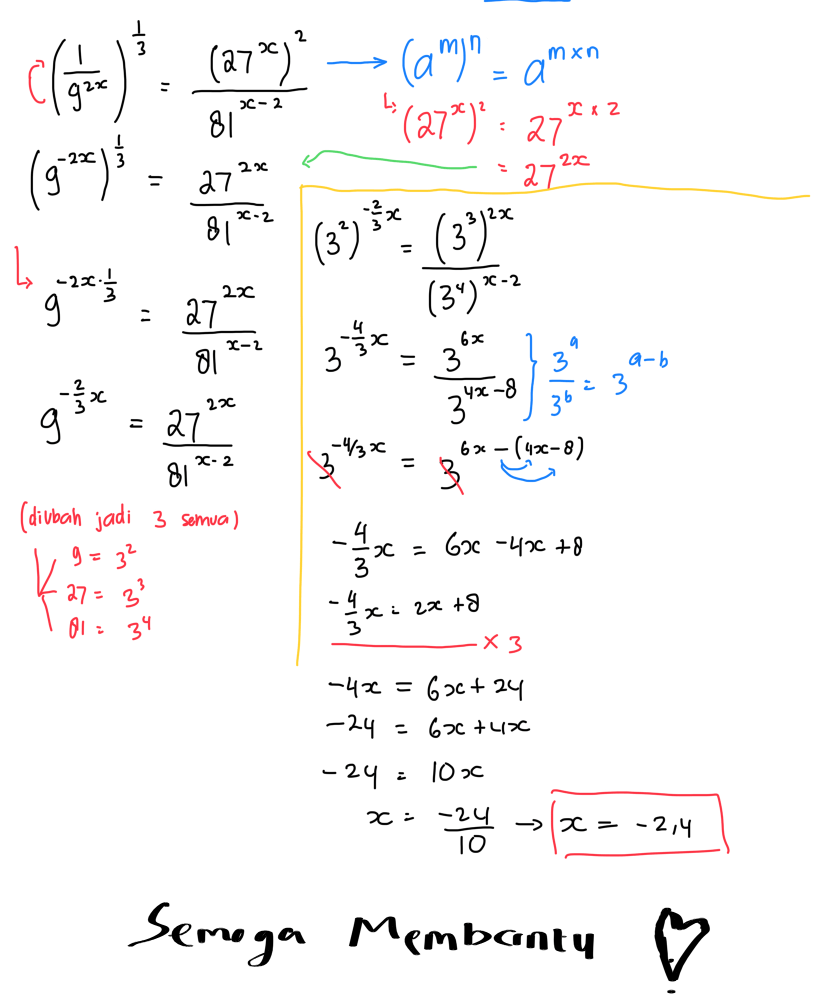 (1/9^(2x))^(1/3) = (27^x)^2 / 81^(x-2) → (a^m)^n = a^(m×n)
(27^x)^2 = 27^(x×2)
= 27^(2x)
(9^(-2x))^(1/3) = 27^(2x) / 81^(x-2)
9^(-2x·1/3) = 27^(2x) / 81^(x-2)
9^(-2/3 x) = 27^(2x) / 81^(x-2)
(diubah jadi 3 semua)
9 = 3^2
27 = 3^3
81 = 3^4
(3^2)^(-2/3 x) = (3^3)^(2x) / (3^4)^(x-2)
3^(-4/3 x) = 3^(6x) / 3^(4x-8) } 3^a / 3^b = 3^(a-b)
3^(-4/3 x) = 3^(6x-(4x-8))
-4/3 x = 6x -4x +8
-4/3 x = 2x +8
× 3
-4x = 6x + 24
-24 = 6x + 4x
-24 = 10x
x = -24/10 → x = -2,4
Semoga Membantu